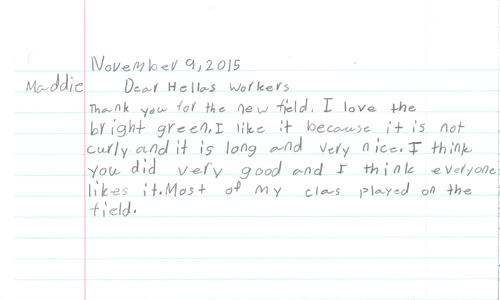 November 9, 2015
Maddie Dear Hellas Workers
Thank you for the new field. I love the
bright green. I like it because it is not
curly and it is long and very nice. I think
you did very good and I think everyone
likes it. Most of my clas played on the
field.